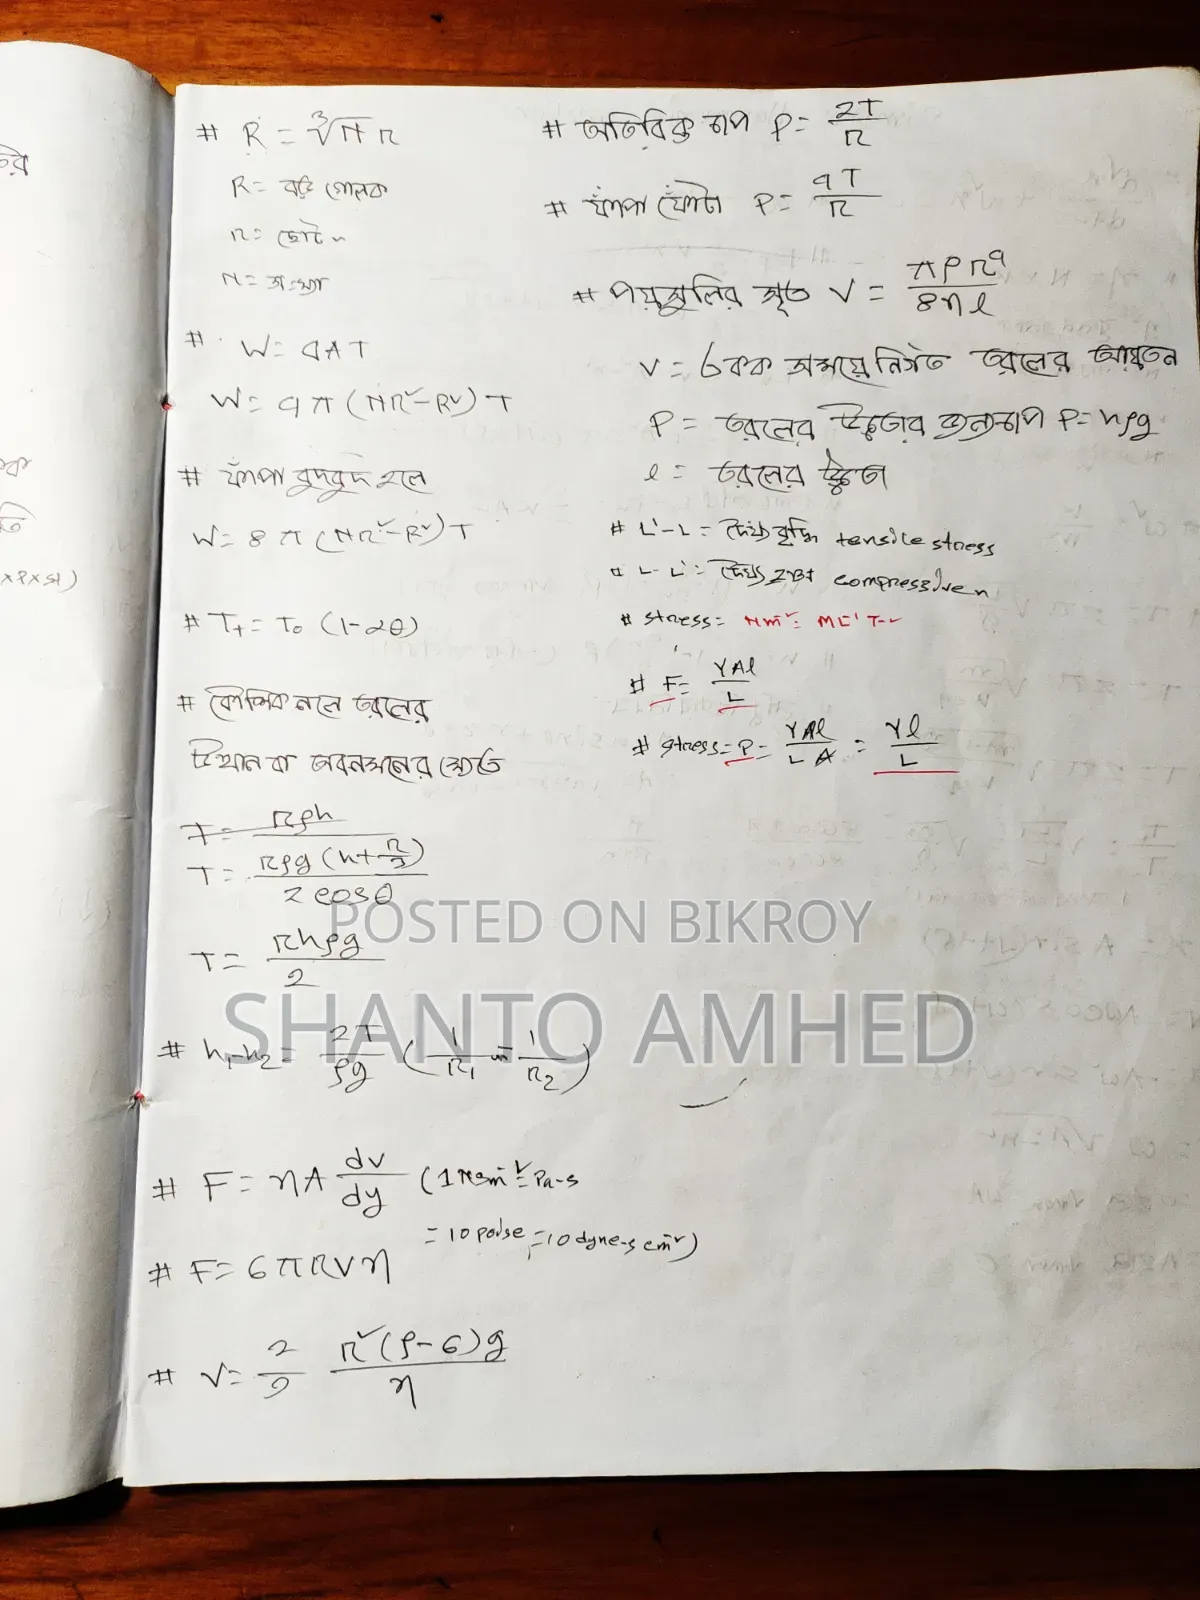 # R = ∛N r
R = বড় গোলক
r = ছোট "
N = সংখ্যা
# W = ΔAT
W = 4π (Nr² - R²) T
# ফাঁপা বুদবুদ হলে
W = 8π (Nr² - R²) T
# T_t = T₀ (1 - αθ)
# কৌশিক নলে তরলের
উত্থান বা অবনমনের ক্ষেত্রে
T = rρh
T = rρg (h + r/3) / 2 cosθ
T = rhρg / 2
# h₁ - h₂ = 2T / ρg (1/r₁ - 1/r₂)
# F = ηA dv/dy (1 Nsm⁻² = Pa-s
= 10 poise = 10 dyne-s cm⁻²)
# F = 6πrvη
# v = 2/9 r²(ρ - σ)g / η
# অতিরিক্ত চাপ P = 2T / r
# ফাঁপা ফোঁটা P = 4T / r
# পয়সুলির সূত্র V = πPr⁴ / 8ηl
V = একক সময়ে নির্গত তরলের আয়তন
P = তরলের উচ্চতার জন্য চাপ P = hρg
l = তরলের উচ্চতা
# L' - L = দৈর্ঘ্য বৃদ্ধি tensile stress
# L - L' = দৈর্ঘ্য হ্রাস compressive "
# stress = Nm⁻² = ML⁻¹T⁻²
# F = YAl / L
# stress = P = YAl / LA = Yl / L
POSTED ON BIKROY
SHANTO AMHED